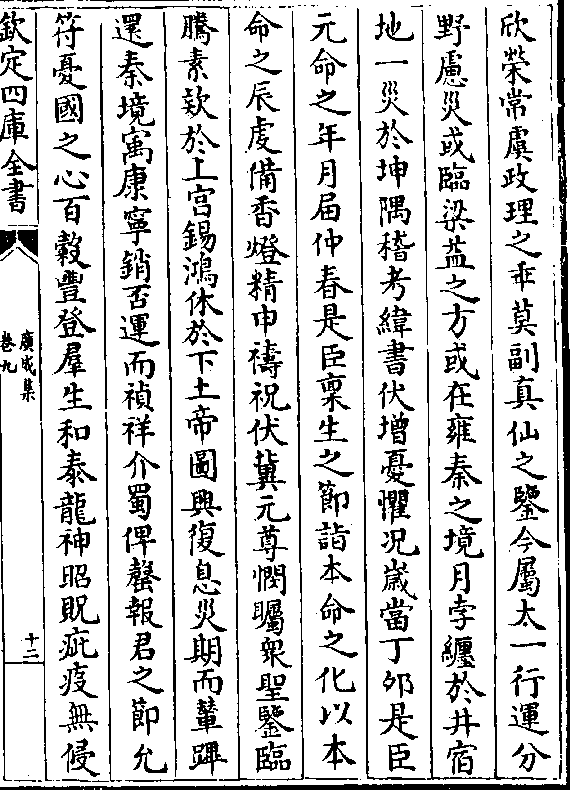 欣榮常虞政理之乖莫副真仙之鑒今屬太一行運分
野慮災或臨梁益之方或在雍秦之境月孛纒於井宿
地一災於坤隅稽考緯書伏增憂懼况歲當丁卯是臣
元命之年月届仲春是臣稟生之節詣本命之化以本
命之辰虔備香燈精申禱祝伏冀元尊憫矚衆聖鑒臨
騰素欵於上宫錫鴻休於下土帝圖興復息災期而輦蹕
還秦境寓康寧銷否運而禎祥介蜀俾罄報君之節允
符憂國之心百穀豐登羣生和泰龍神昭貺疵疫無侵
欽定四庫全書
廣成集
卷九
十二